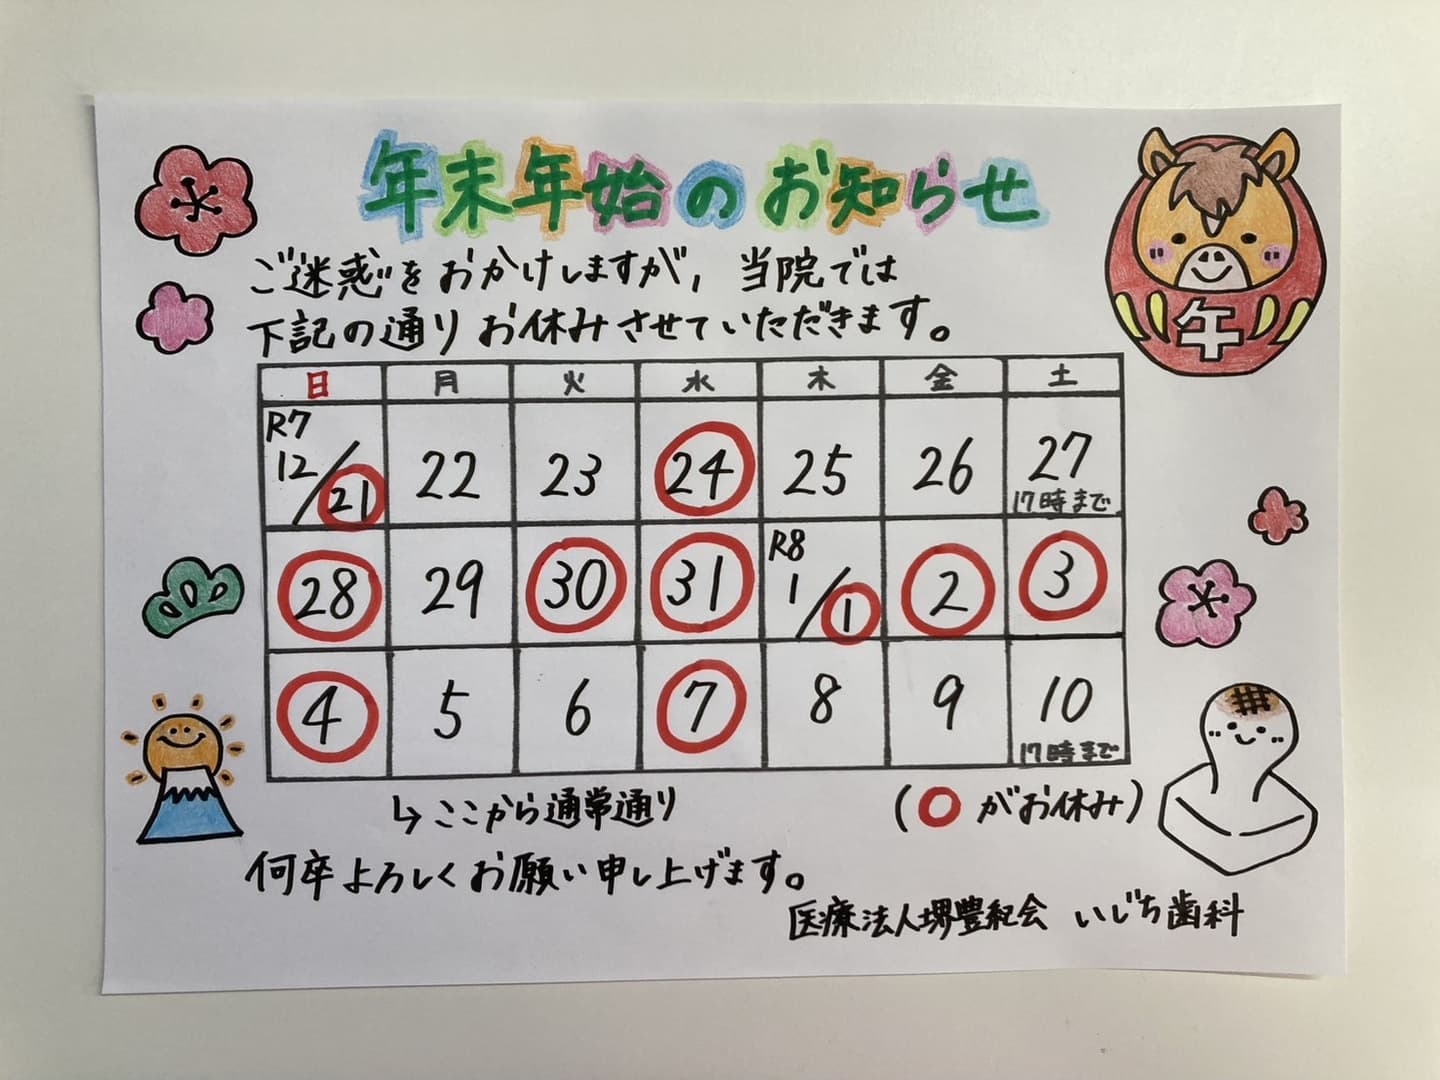 年末年始のお知らせ
ご迷惑をおかけしますが、当院では
下記の通りお休みさせていただきます。
午
日 月 火 水 木 金 土
R7 12/21 22 23 24 25 26 27 17時まで
28 29 30 31 R8 1/1 2 3
4 5 6 7 8 9 10 17時まで
↳ここから通常通り (○がお休み)
何卒よろしくお願い申し上げます。
医療法人堺豊紀会 いじち歯科